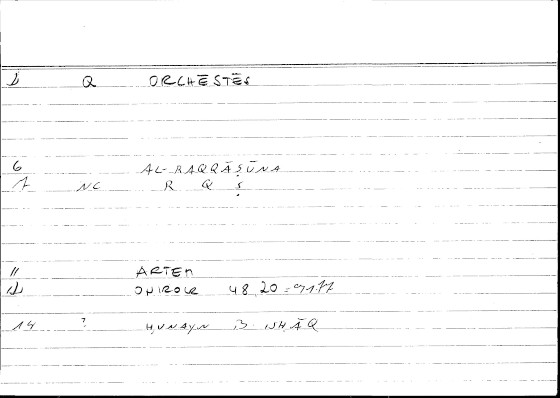 Q ORCHĒSTĒS
6 AL-RAQQĀṢŪNA
7 NC R Q Ṣ
11 ARTEM
ONIROCR 48,20 = 91,
14 ? ḤUNAYN B ISḤĀQ